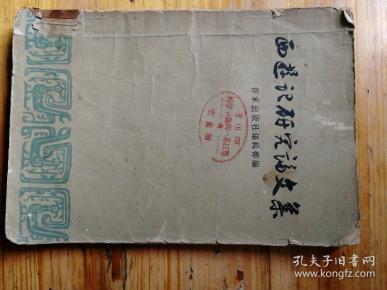 西遊記研究論文集
作家出版社編輯部編
孔夫子旧书网
www.kongfz.com